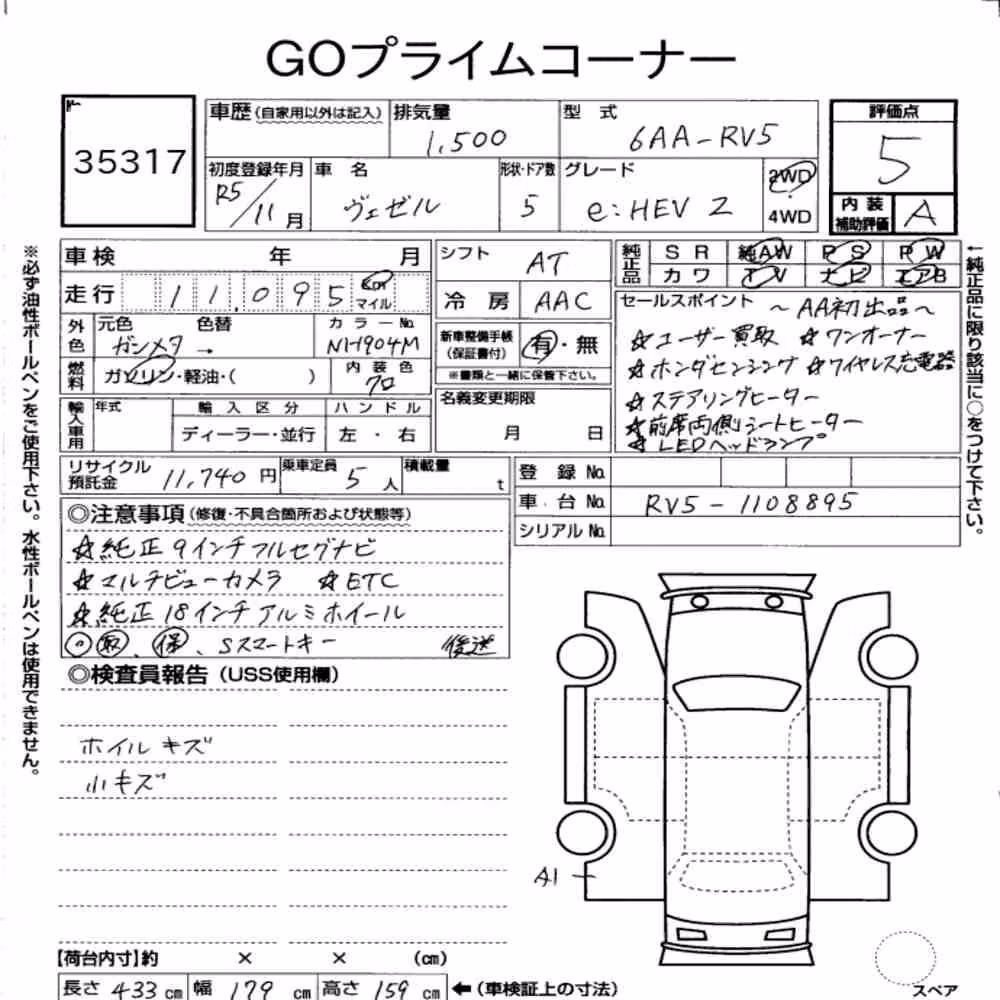 GOプライムコーナー
35317
車歴(自家用以外は記入)
排気量
1,500
型 式
6AA-RV5
評価点
5
初度登録年月
R5/11月
車 名
ヴェゼル
形状・ドア数
5
グレード
e:HEV Z
2WD
4WD
内装
補助評価
A
車検 年 月
走行 11,095 km マイル
外色
元色
ガンメタ →
色替
カラーNo.
NH904M
燃料
ガソリン・軽油・( )
内装色
クロ
輸入車用
年式
輸入区分
ディーラー・並行
ハンドル
左・右
シフト
AT
冷房
AAC
新車整備手帳
(保証書付)
有・無
※書類と一緒に保管下さい。
名義変更期限
月 日
純正品
SR 純AW PS PW
カワ TV ナビ エアB
セールスポイント 〜AA初出品〜
☆ユーザー買取 ☆ワンオーナー
☆ホンダセンシング ☆ワイヤレス充電器
☆ステアリングヒーター
☆前席両側シートヒーター
☆LEDヘッドランプ
リサイクル
預託金
11,740円
乗車定員
5人
積載量
t
登録No.
車台No.
RV5-1108895
シリアルNo.
◎注意事項(修復・不具合箇所および状態等)
☆純正9インチフルセグナビ
☆マルチビューカメラ ☆ETC
☆純正18インチアルミホイール
取、保、Sスマートキー 後送
◎検査員報告(USS使用欄)
ホイルキズ
小キズ
A1
【荷台内寸】約 × × (cm)
長さ 433 cm 幅 179 cm 高さ 159 cm ←(車検証上の寸法)
スペア
※必ず油性ボールペンをご使用下さい。水性ボールペンは使用できません。
←純正品に限り該当に○をつけて下さい。